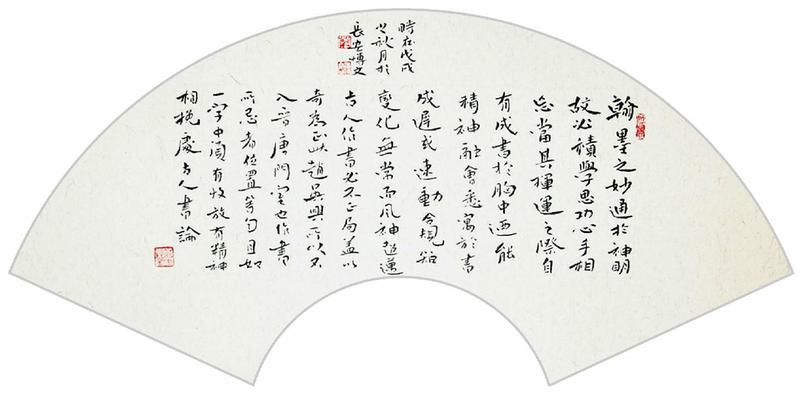 翰墨之妙通於神明
故必積學思功心手相
忘當其揮運之際自
有成書於胸中迺能
精神融會悉寓於書
或遲或速動合規矩
變化無常而風神超邁
古人作書必不正局蓋以
奇為正此趙吳興所以不
入晉唐門室也作書
所忌者位置等勻且如
一字中須有收放有精神
相挽處古人書論
時在戊戌
之秋月於
長安博文